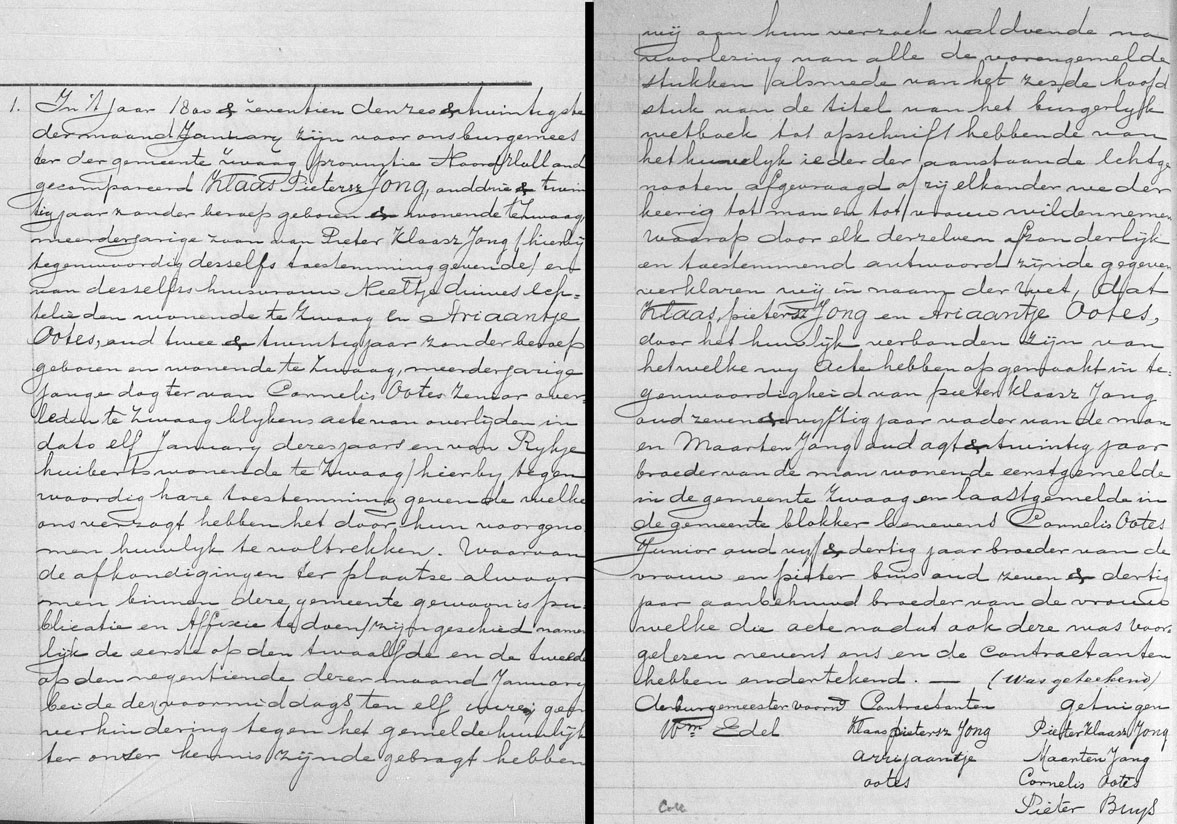 1. In 't jaar 1800 & zeventien den zes & twintigste
der maand January zijn voor ons burgemees
ter der gemeente Zwaag provintie Noord Holland
gecompareerd Klaas Pietersz Jong, oud drie & twin
tig jaar zonder beroep geboren & wonende te Zwaag,
meerderjarige zoon van Pieter Klaasz Jong (hierbij
tegenwoordig desselfs toestemming gevende) en
van desselfs huisvrouw Neeltje Duives ech=
telieden wonende te Zwaag En Ariaantje
Ootes, oud twee & twintig jaar zonder beroep
geboren en wonende te Zwaag, meerderjarige
jonge dogter van Cornelis Ootes Zenior over
leden te Zwaag blykens acte van overlijden in
dato elf January dezes jaars en van Rykje
huiberts wonende te Zwaag (hierby tegen
woordig hare toestemming gevende welke
ons verzogt hebben het door hun voorgeno
men huwlyk te voltrekken. Waarvan
de afkondigingen ter plaatse alwaar
men binnen deze gemeente gewoon is pu
blicatie en Affixie te doen) zijn geschied name
lijk de eerste op den twaalfde en de tweede
op den negentiende dezer maand January
beide des voormiddags ten elf ure; geen
verhindering tegen het gemelde huwlijk
ter onser kennis zijnde gebragt hebben
wij aan hun verzoek voldoende na
voorlezing van alle de vorengemelde
stukken (alsmede van het zesde hoofd
stuk van de titel van het burgerlyk
wetboek tot opschrift hebbende van
het huwelyk ieder der aanstaande Echtge
nooten afgevraagd of zij elkander weder
keerig tot man en tot vrouw wilden nemen
Waarop door elk derzelven afzonderlijk
en toestemmend antwoord zijnde gegeven
verklaren wij in naam der Wet, dat
Klaas, pietersz Jong en Ariaantje Ootes,
door het huwlijk verbonden zijn van
het welke wy Acte hebben opgemaakt in te=
genwoordigheid van pieter klaasz Jong
oud zeven & vyftig jaar vader van de man
en Maarten Jong oud agt & twintig jaar
broeder van de man wonende eerstgemelde
in de gemeente Zwaag en laastgemelde in
de gemeente blokker benevens Cornelis Ootes
Junior oud vyf & dertig jaar broeder van de
vrouw en pieter buis oud zeven & dertig
jaar aanbehuwd broeder van de vrouw
welke die acte nadat ook deze was voor
gelezen nevens ons en de Contractanten
hebben ondertekend. — (Was geteekend)
de burgemeester voornd Contractanten getuigen
Wm Edel Klaas pietersz Jong Pieter Klaasz Jong
arrijaantje Maarten Jong
ootes Cornelis Ootes
Coll Pieter Buys